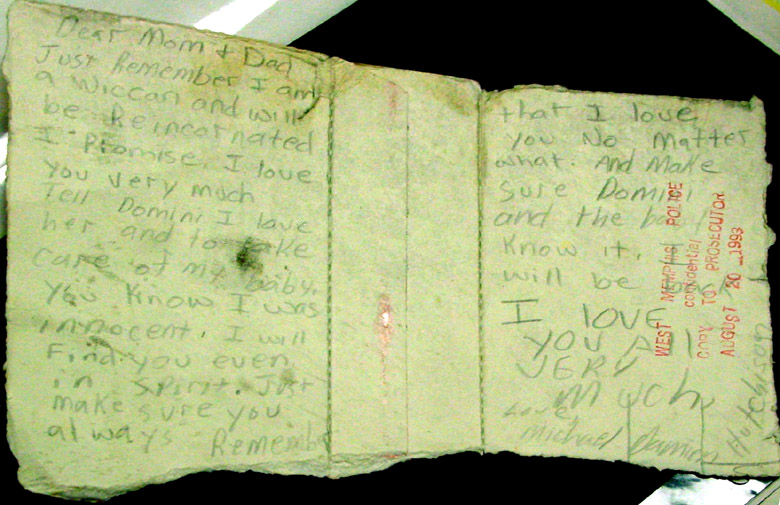 Dear Mom + Dad
Just Remember I am
a Wiccan and will
be Reincarnated
I Promise. I love
you very much
Tell Domini I love
her and to take
care of my baby.
You know I was
innocent. I will
Find you even
in spirit. Just
make sure you
always Remember
that I love
you No Matter
what. And Make
Sure Domini
and the baby
Know it. I
will be back
I LOVE
YOU All
VERY
Much
Love,
Michael Damien
Hutchison
WEST MEMPHIS POLICE
confidential
COPY TO PROSECUTOR
AUGUST 20 1993